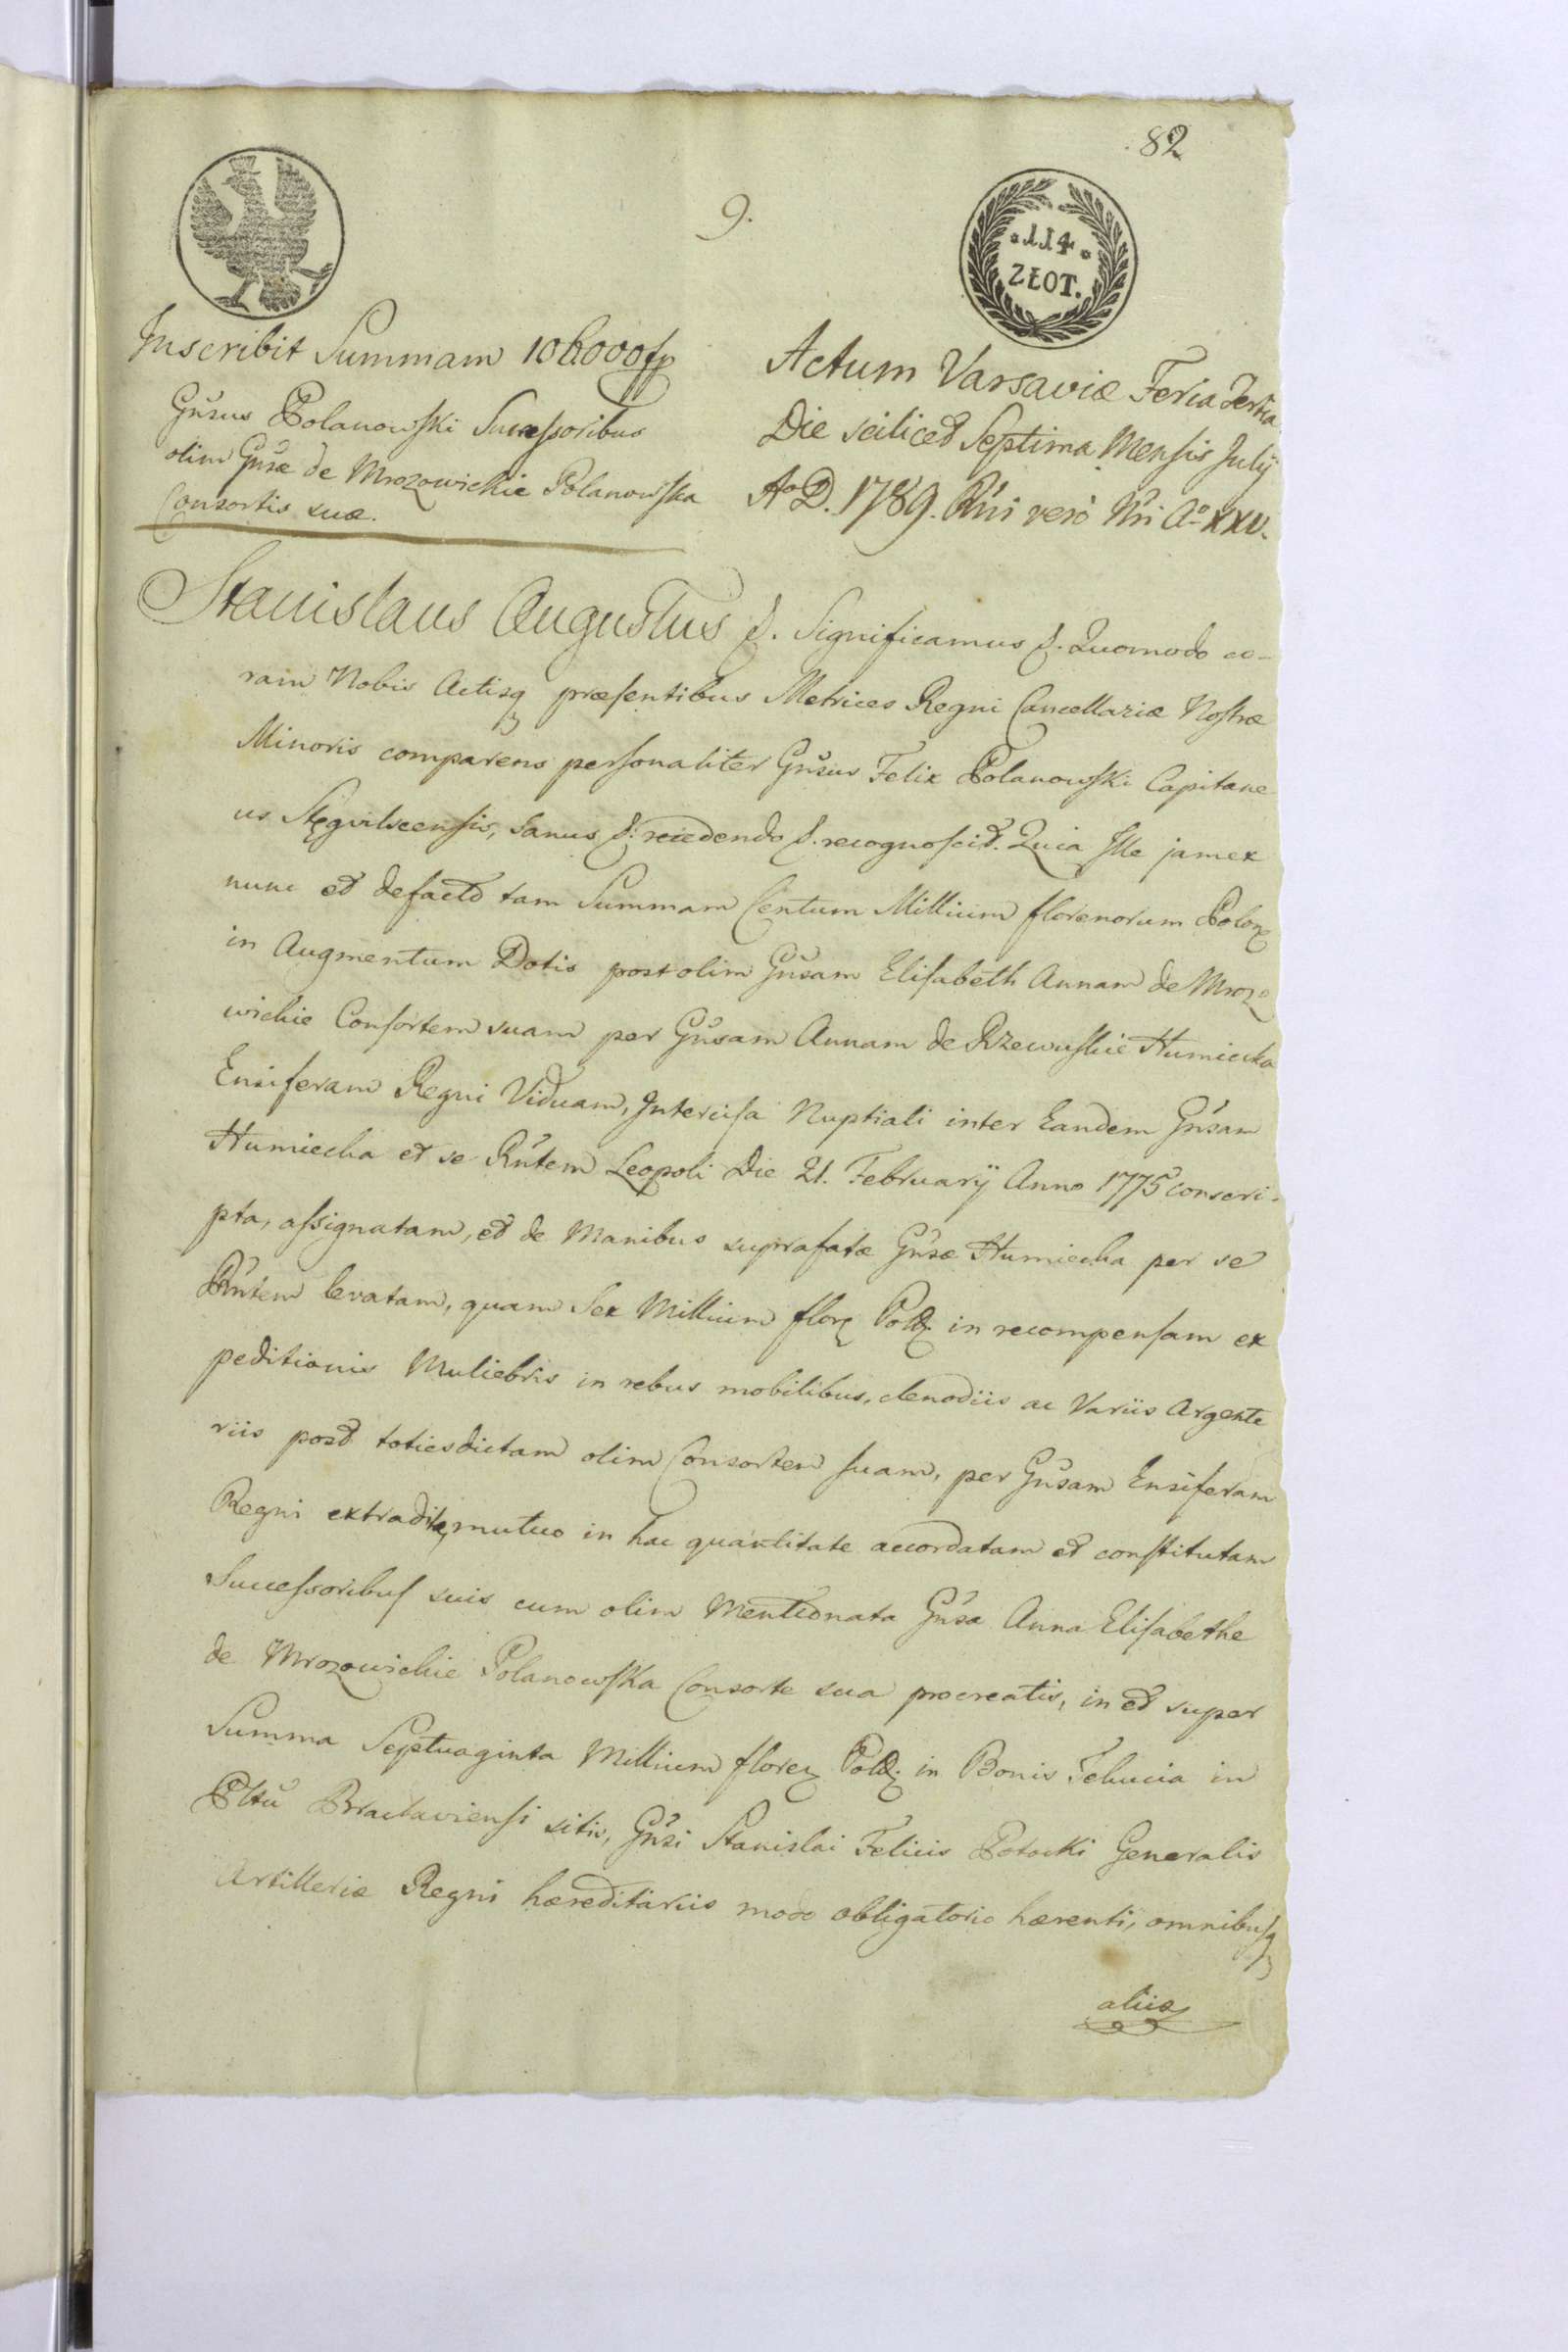 82
9.
114
ZŁOT.
Inscribit Summam 106000 fp
Gn̄sus Polanowski Successoribus
olim Gn̄sæ de Mrozowickie Polanowska
Consortis suæ.
Actum Varsaviæ Feria Tertia
Die scilicet Septima Mensis Julij
Ao D. 1789. Rn̄i verò Nr̄i Ao XXV.
Stanislaus Augustus &. Significamus &. Quomodo co-
ram Nobis Actisq præsentibus Metrices Regni Cancellariæ Nostræ
Minoris comparens personaliter Gn̄sus Felix Polanowski Capitane
us Stęgvilscensis, sanus &. recedendo &. recognoscit. Quia Ille jam ex
nunc et defacto tam Summam Centum Millium florenorum Polon
in Augmentum Dotis post olim Gn̄sam Elisabeth Annam de Mrozo
wickie Consortem suam per Gn̄sam Annam de Rzewuskie Humiecka
Ensiferam Regni Viduam, Intercisa Nuptiali inter Eandem Gn̄sam
Humiecka et se Rn̄tem Leopoli Die 21. Februarij Anno 1775 conscri-
pta, assignatam, et de Manibus suprafatæ Gn̄sæ Humiecka per se
Rn̄tem levatam, quam Sex Millium flor Pol in recompensam ex
peditionis Muliebris in rebus mobilibus, clenodiis ac Variis Argente
riis post totiesdictam olim Consortem suam, per Gn̄sam Ensiferam
Regni extradita, mutuo in hac quantitate accordatam et constitutam
Successoribus suis cum olim Mentionata Gn̄sa Anna Elisabethe
de Mrozowickie Polanowska Consorte sua procreatis, in et super
Summa Septuaginta Millium floren Pol in Bonis Felucia in
Pltū Braclaviensi sitis, Gn̄si Stanislai Felicis Potocki Generalis
Artilleriæ Regni hæreditariis modo obligatorio hærenti, omnibusq
aliis